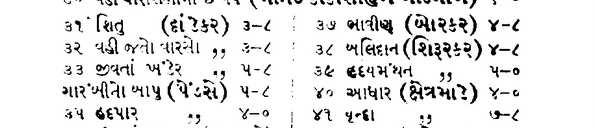 ૩૧ શિતુ (દાંડેકર) ૩-૮
૩૨ વહી જતો વારસો ,, ૩-૮
૩૩ જીવતાં ખંડેર ,, ૫-૮
ગારંબીનો બાપુ (પેંડસે) ૫-૮
૩૫ હદપાર ,, ૪-૦
૩૭ ભાવીણ (બોરકર) ૪-૮
૩૮ બલિદાન (શિરૂરકર) ૪-૮
૩૯ હૃદયમંથન ,, ૫-૦
૪૦ આધાર (ક્ષેત્રમાડે) ૪-૦
૪૧ વૃન્દા ,, ૭-૮